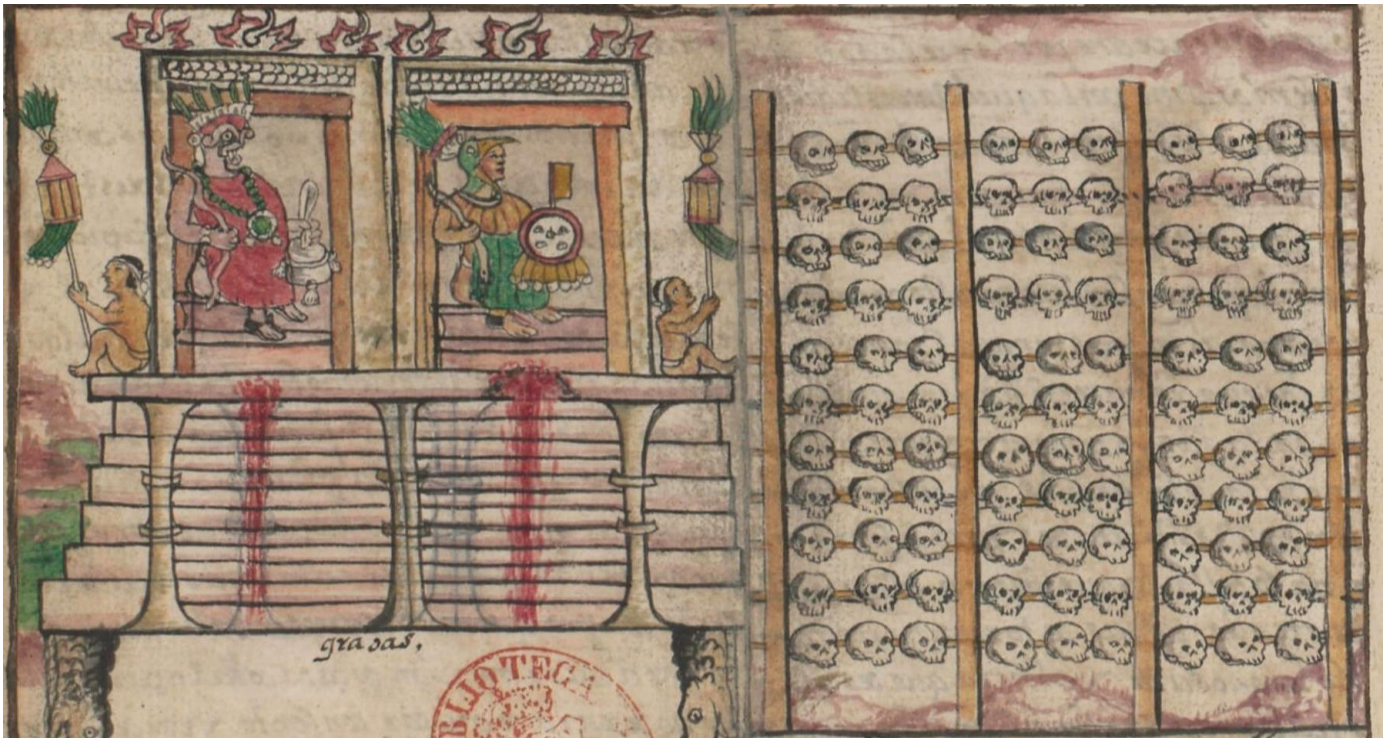 gradas,
BLIOTECA